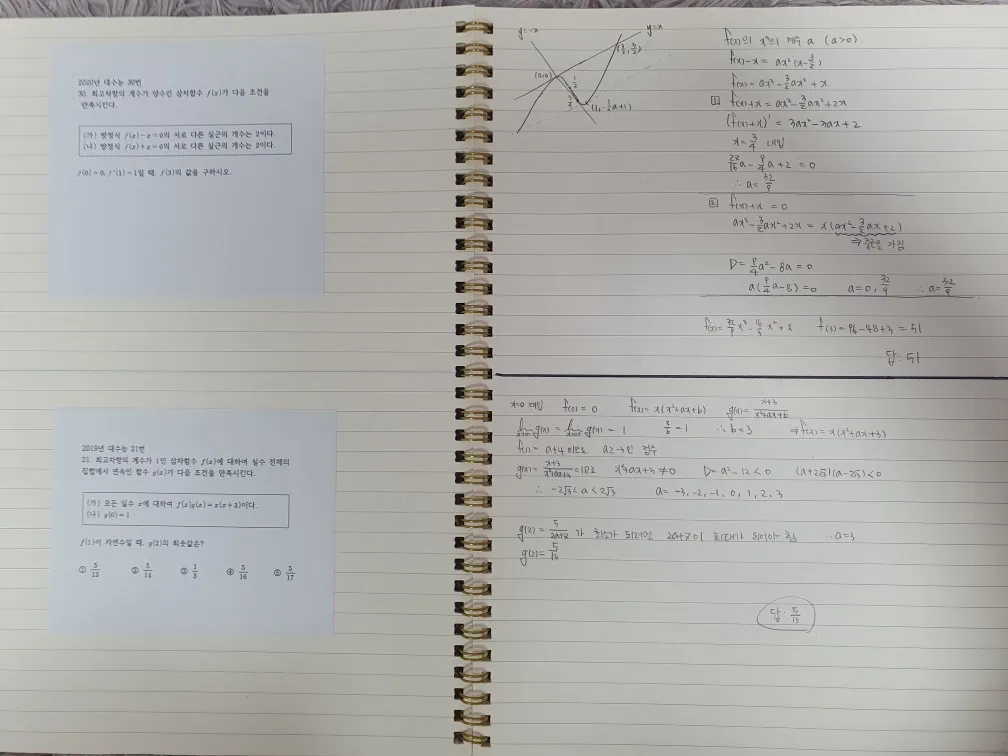 2020년 대수능 30번
30. 최고차항의 계수가 양수인 삼차함수 f(x)가 다음 조건을
만족시킨다.
(가) 방정식 f(x)-x=0의 서로 다른 실근의 개수는 2이다.
(나) 방정식 f(x)+x=0의 서로 다른 실근의 개수는 2이다.
f(0)=0, f'(1)=1일 때, f(3)의 값을 구하시오.
2019년 대수능 21번
21. 최고차항의 계수가 1인 삼차함수 f(x)에 대하여 실수 전체의
집합에서 연속인 함수 g(x)가 다음 조건을 만족시킨다.
(가) 모든 실수 x에 대하여 f(x)g(x)=x(x+3)이다.
(나) g(0)=1
f(1)이 자연수일 때, g(2)의 최솟값은?
① 5/13 ② 5/14 ③ 1/3 ④ 5/16 ⑤ 5/17
y=-x y=x
(3/2, 3/2)
(0,0)
(1, -1/2a+1)
f(x)의 x³의 계수 a (a>0)
f(x)-x = ax²(x-3/2)
f(x) = ax³-3/2ax²+x
1 f(x)+x = ax³-3/2ax²+2x
(f(x)+x)' = 3ax²-3ax+2
x=3/4 대입
27/16a-9/4a+2=0
∴ a=32/9
2 f(x)+x = 0
ax³-3/2ax²+2x = x(ax²-3/2ax+2)
⇒ 중근 가짐
D= 9/4a²-8a=0
a(9/4a-8)=0 a=0, 32/9 ∴ a=32/9
f(x)=32/9x³-16/3x²+x f(3)=96-48+3=51
답: 51
x=0 대입 f(0)=0 f(x)=x(x²+ax+b) g(x)=x+3/x²+ax+b
g(x) = g(x)=1 3/b=1 ∴ b=3 ⇒ f(x)=x(x²+ax+3)
f(1)= a+4 이므로 a≥-3인 정수
g(x)=x+3/x²+ax+3 이므로 x²+ax+3≠0 D=a²-12<0 (a+2√3)(a-2√3)<0
∴ -2√3<a<2√3 a=-3, -2, -1, 0, 1, 2, 3
g(2)=5/2a+7 가 최소가 되려면 2a+7이 최대가 되어야 함 ∴ a=3
g(2)=5/13
답: 5/13